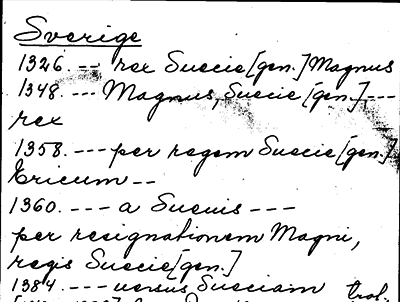 Sverige
1326. -- rex Suecie [gen.] Magnus
1348. --- Magnus, Suecie [gen.], ---
rex
1358. --- per regem Suecie [gen.]
Ericum --
1360. --- a Sueuis ---
per resignationem Magni,
regis Suecie [gen.]
1384. --- uersus Sueciam